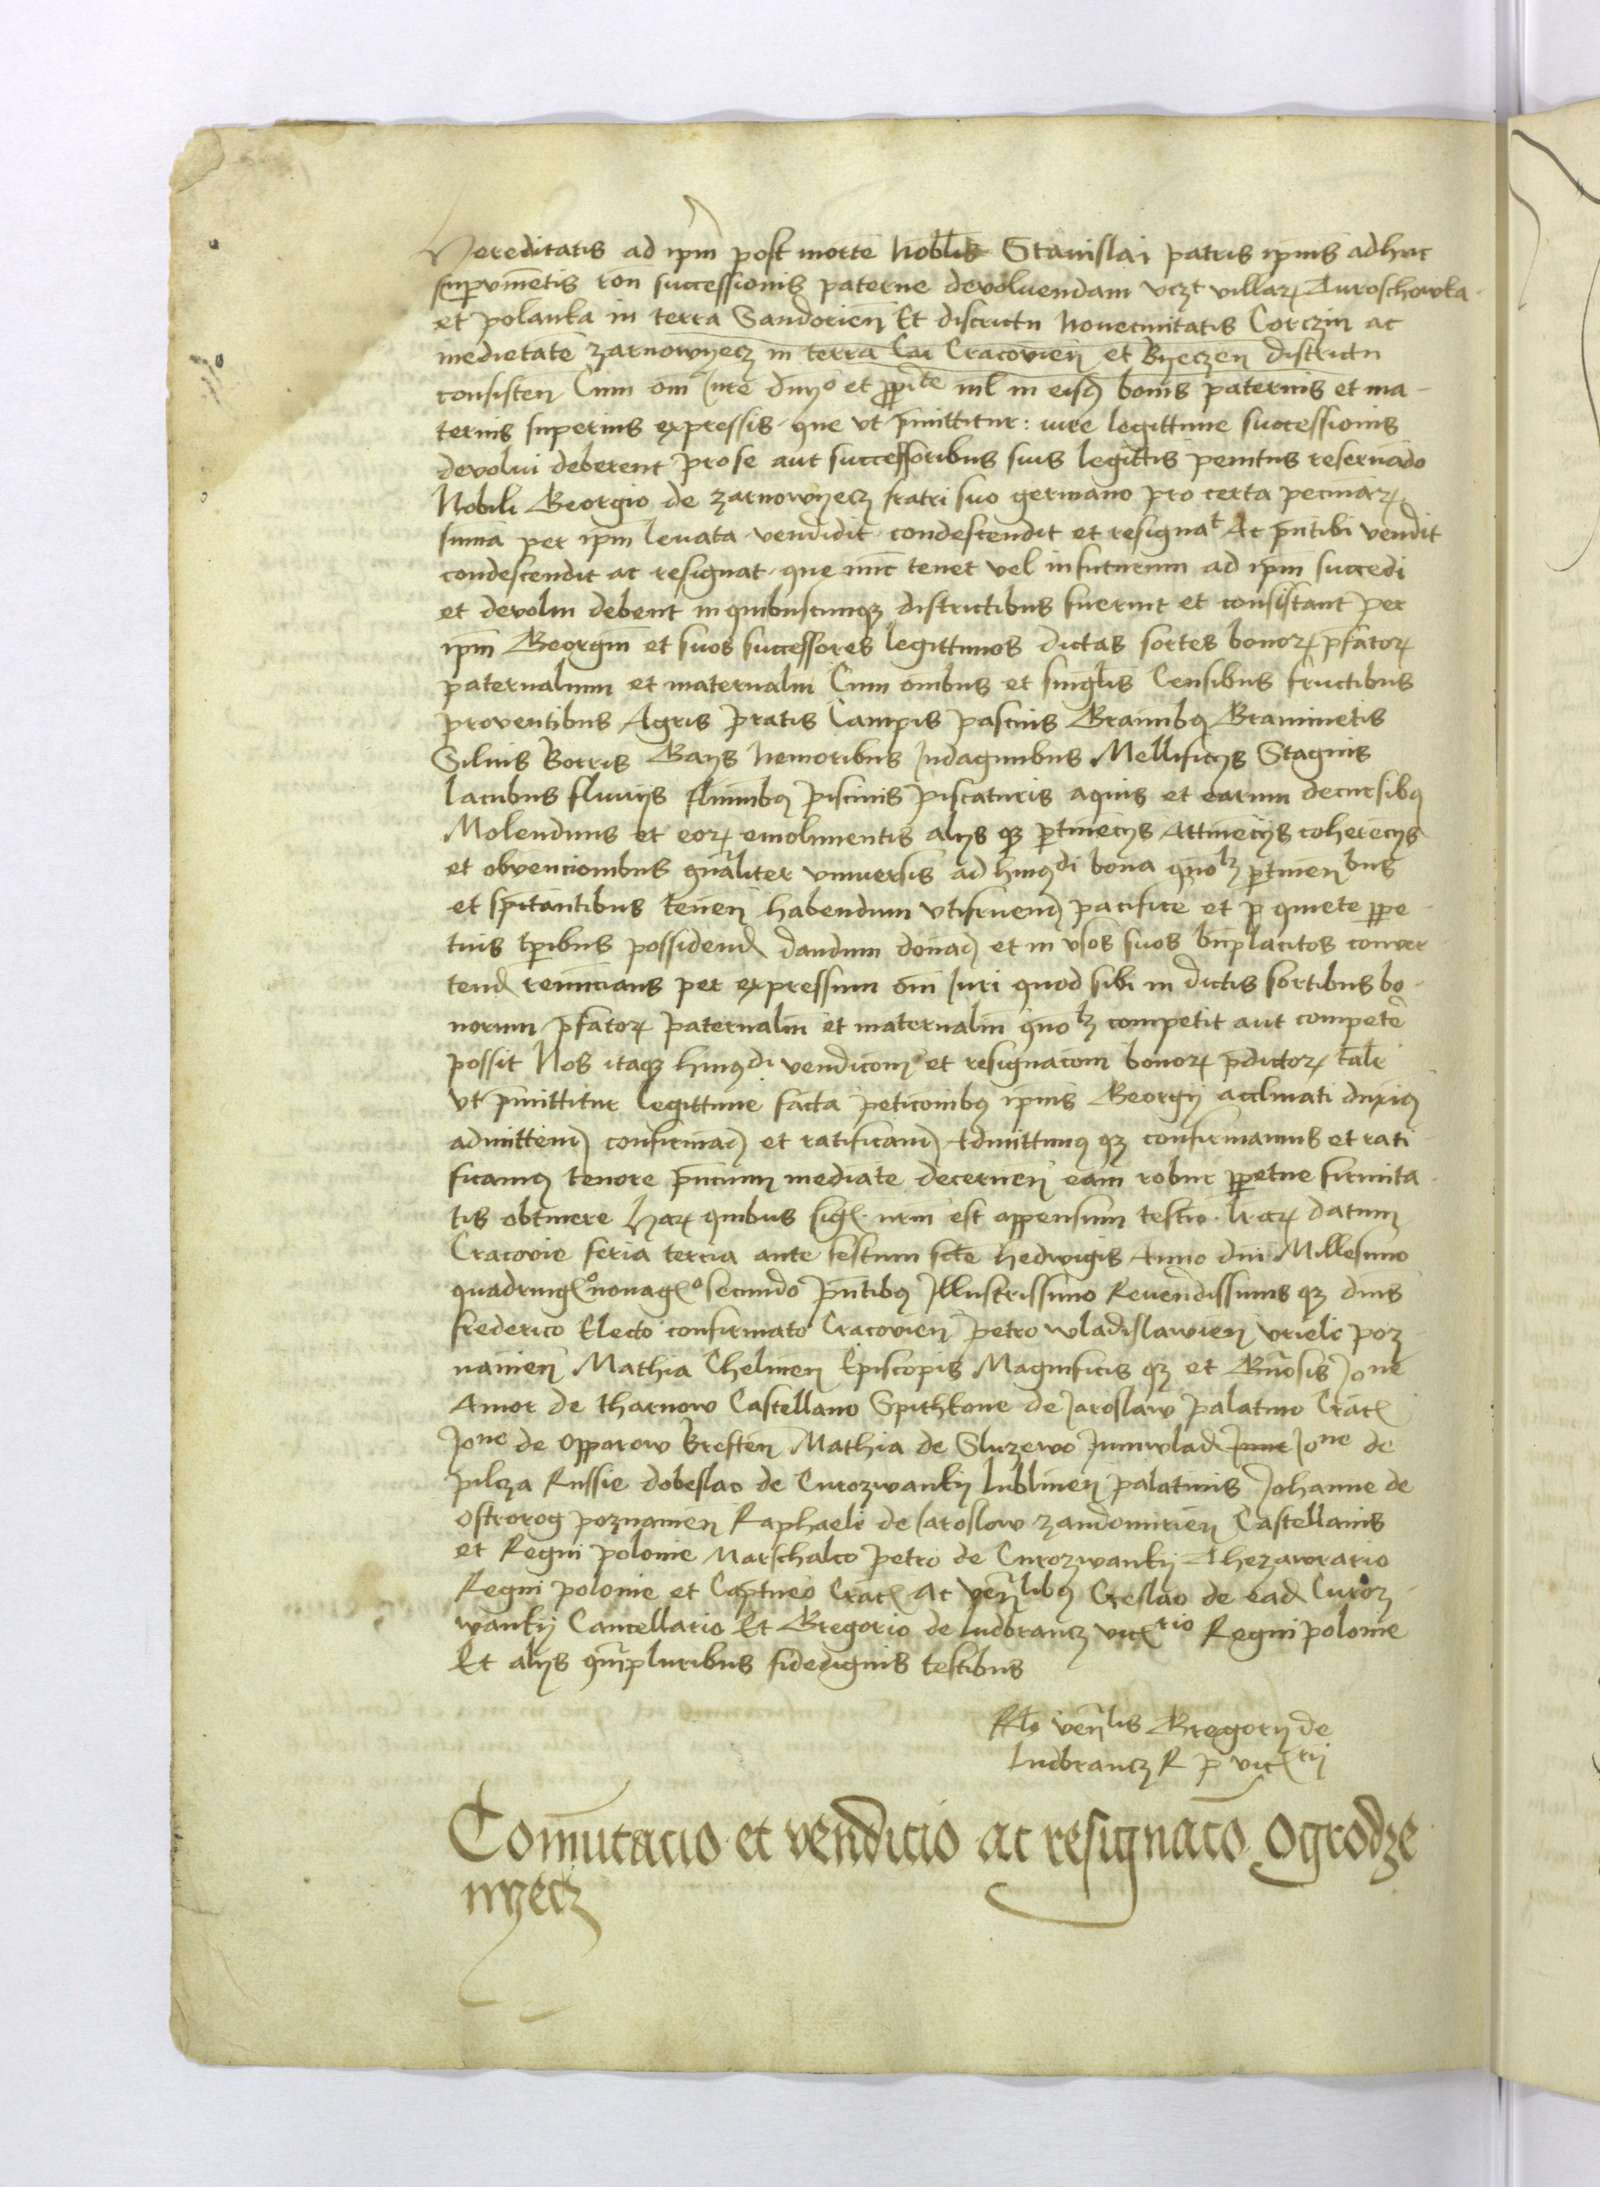 Hereditatis ad ipm̄ post mortē Nobilis Stanislai patris ipius adhuc
supviuētis rōn successionis paterne devoluendam vczt villarꝝ Turoschowka
et polanka in terra Sandoriēn Et districtu Noveciuitatis Corczin ac
medietate Zarnowyecz in terra Cra Cracoviēn et Byeczēn districtu
consistēn Cum om̄ Jure dnyo et ꝓpite nl in eisdꝫ bonis paternis et ma-
ternis superius expressis que vt p̄mittitur: iure legittime successionis
devolui deberent pro se aut successoribus suis legittīs penitus reservādo
Nobili Georgio de Zarnowyecz fratri suo germano pro certa pecūiarꝝ
sum̄a per ipm̄ levata vendidit condescendit et resignat Ac p̄ntibi vendit
condescendit ac resignat que nūc tenet vel infuturum ad ipm̄ succedi
et devolui debent in quibuscumqꝫ districtibus fuerint et consistant per
ipm̄ Georgiū et suos successores legittimos dictas sortes bonorꝝ p̄fatorꝝ
paternalium et maternaliū Cum om̄ibus et singl̄is Censibus fructibus
proventibus Agris Pratis Campis pascuis Graīnibꝰ Graminetis
Siluis Borris Gays Nemoribus Indaginibus Mellificiis Stagnis
lacubus fluviis fluīnibꝰ piscinis piscaturis aquis et earum decursibꝰ
Molendinis et eorꝝ emolimentis aliis qꝫ ꝑtinēciis Attinēciis coherēciis
et obvencionibus gn̄aliter vniuersis ad huiꝰdi bona quolꝫ ꝑtinēnbus
et spectantibus tenēn habendum vtifruendꝫ pacifice et ꝑ quiete ꝑpe-
tuis tp̄ibus possidendꝫ dandum donādꝫ et in vsos suos bn̄placitos conver-
tendꝫ renūcians per expressum om̄i Juri quod sibi in dictis sortibus bo-
norum p̄fatorꝝ paternaliū et maternaliū quolꝫ competit aut competē
possit Nos itaqꝫ huiꝰdi vendicōnem et resignacōm bonorꝝ p̄dictorꝝ talr̄
vt p̄mittitur legittime facta peticōnibꝰ ipius Georgii acclinati duxiꝰ
admittendꝫ confirmādꝫ et ratificandꝫ Admittimꝰ qꝫ confirmamus et rati-
ficamꝰ tenore p̄ncium mediate decernēn eam robur ꝑpetue firmita-
tis obtinere Harꝝ quibus sigꝫ nr̄m est appensum testīo lr̄arꝝ Datum
Cracovie feria tercia ante festum scte Hedwigis Anno dni Millesimo
quadringꝫo nonagꝫo secundo p̄ntibꝰ Illustrissimo Reverendissimis qꝫ dnis
Frederico Electo confirmato Cracoviēn Petro Wladislaviēn Vriele poz-
naniēn Mathia Chelmēn Episcopis Magnificis qꝫ et Gn̄osis Jone
Amor de Tharnow Castellano Spithkone de Jaroslaw palatino Cracꝫ
Jone de Opporow Brestēn Mathia de Sluzewo Juniwladꝫ Jone de
pilcza Russie dobeslao de Curozwanky Lublinēn palatinis Johanne de
Ostrorog poznaniēn Raphaele de Jaroslow Zandomiriēn Castellanis
et Regni polonie Marschalco Petro de Curozwanky Thezawrario
Regni polonie et Capitneo Cracꝫ Ac Ven̄libꝰ Creslao de eadꝫ Curoz-
wanky Cancellario Et Gregorio de Ludbrancz vicꝫrio Regni polonie
Et aliis quāpluribus fidedignis testibus
Rl̄o Ven̄lis Gregorii de
Ludbrancz R p vicꝫrii
Com̄utacio et vendicio ac resignacō Ogrodze
nyecz